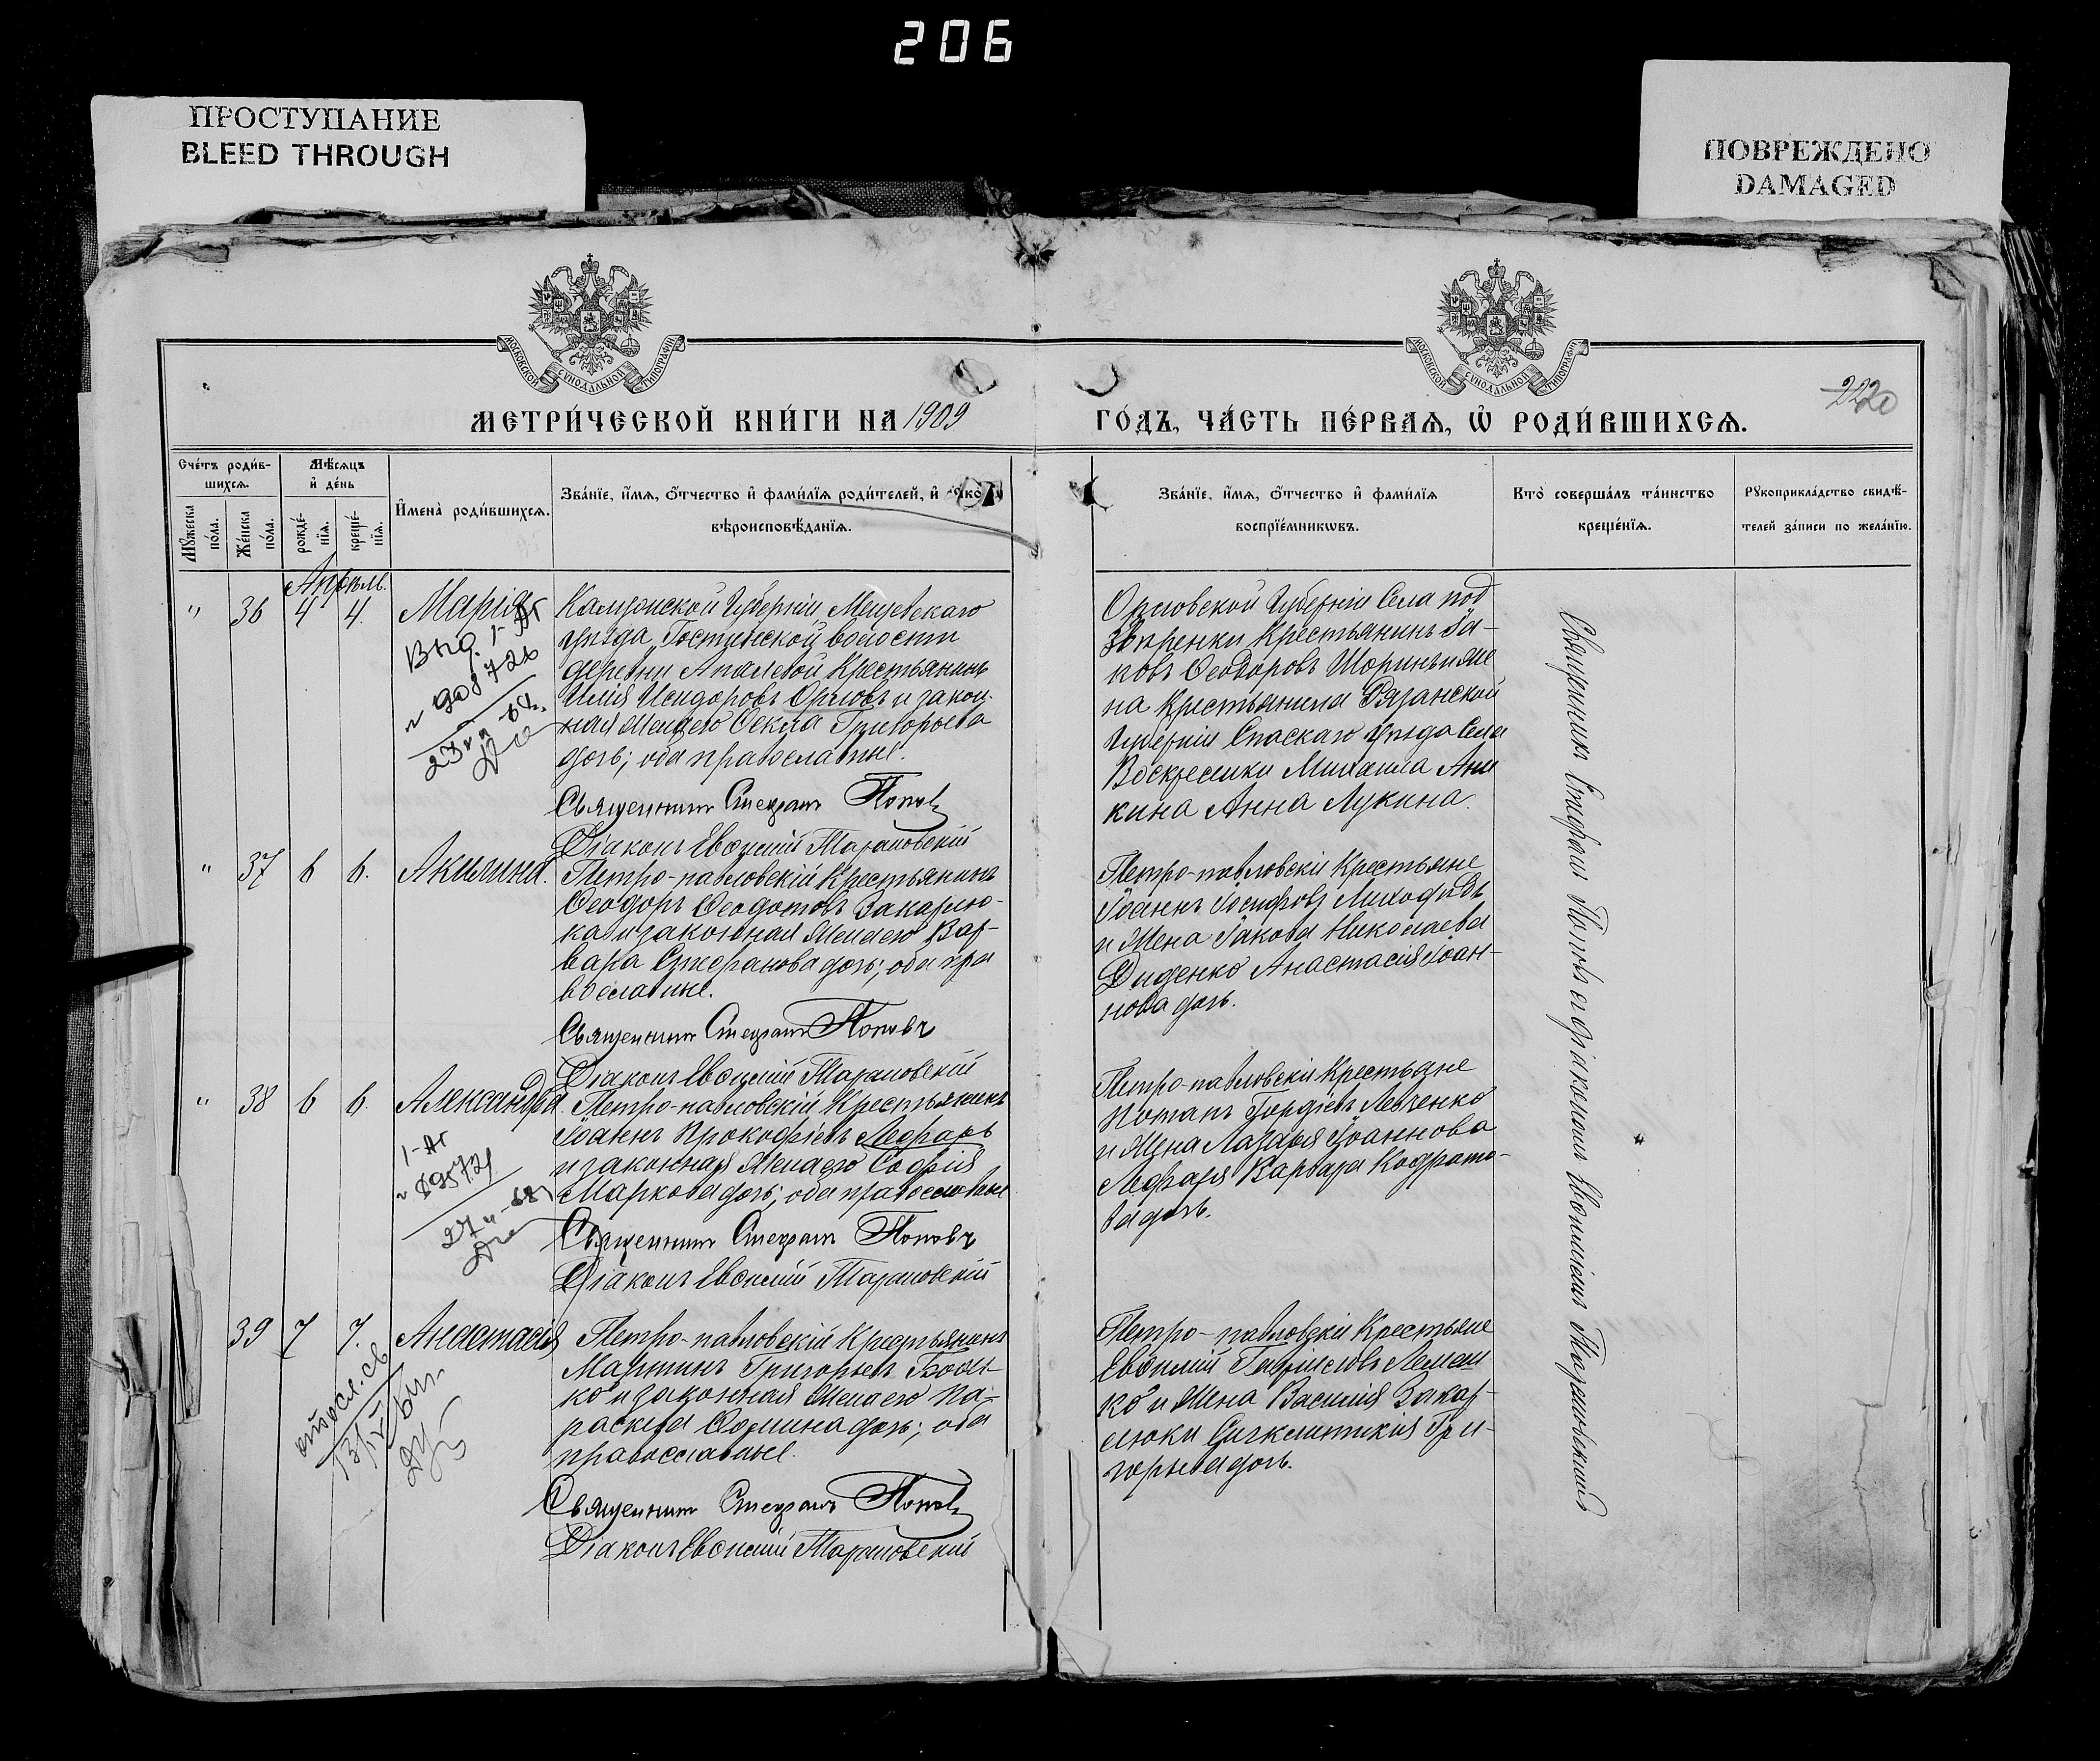 206
ПРОСТУПАНИЕ
BLEED THROUGH
ПОВРЕЖДЕНО
DAMAGED
МОСКОВСКОЙ СУНОДАЛЬНОЙ ТИПОГРАФІИ
МОСКОВСКОЙ СУНОДАЛЬНОЙ ТИПОГРАФІИ
220
МЕТРИ́ЧЕСКОЙ КНИ́ГИ НА 1909
ГО́ДЪ, ЧА́СТЬ ПЕ́РВАѦ, Ѡ РОДИ́ВШИХСѦ.
Сче́тъ роди́в-
шихсѧ.
Мꙋ́жеска
по́ла.
Же́нска
по́ла.
Мѣ́сѧцъ
и҆ де́нь
рожде́-
нїѧ.
креще́-
нїѧ.
И҆мена̀ роди́вшихсѧ.
Зва́нїе, и҆́мѧ, ѻ҆́тчество и҆ фами́лїѧ роди́телей, и҆
вѣроисповѣ́данїѧ.
Зва́нїе, и҆́мѧ, ѻ҆́тчество и҆ фами́лїѧ
воспрїе́мникѡвъ.
Кто̀ соверша́лъ та́инство
креще́нїѧ.
Рꙋкоприкла́дство свидѣ́-
телей за́писи по жела́нїю.
Апрѣль.
" 36 4 4. Марія
Калужской Губерніи Мещовскаго
уѣзда, Гостинской волости
деревни Крестьянинъ
Илія Исидоровъ Орловъ и закон-
ная жена его Ѳекла Григорьева
дочь; оба православные.
Священникъ Стефанъ Поповъ
Діаконъ Евѳимій Тарановскій
Орловской Губерніи Села Под
Крестьянинъ Іа-
ковъ Ѳеодоровъ Шоринъ и же
на Крестьянина Рязанской
Губерніи Спаскаго уѣзда Села
Воскресенки Михаила Ани
кина Анна Лукина.
" 37 6 6. Акилина.
Петро-павловскій Крестьянинъ
Ѳеодоръ Ѳеодотовъ Закарлю-
ка и законная жена его Вар-
вара Стефанова дочь; оба пра
вославные.
Священникъ Стефанъ Поповъ
Діаконъ Евѳимій Тарановскій
Петро-павловскіи Крестьяне
Іоаннъ Іосифовъ
и жена Іакова Николаева
Диденко Анастасія Іоан-
нова дочь.
" 38 6 6. Александра.
Петро-павловскій Крестьянинъ
Іоаннъ Прокофіевъ Лефарь
и законная жена его Софія
Маркова дочь; оба православные
Священникъ Стефанъ Поповъ
Діаконъ Евѳимій Тарановскій
Петро-павловскіи Крестьяне
Потапъ Гордіевъ Левченко
и жена Лазаря Іоаннова
Лефаря Варвара Кодрато-
ва дочь.
39 7 7. Анастасія
Петро-павловскій Крестьянинъ
Мартинъ Григорьевъ
ко и законная жена его Па-
раскева Ѳомина дочь; оба
православные.
Священникъ Стефанъ Поповъ
Діаконъ Евѳимій Тарановскій
Петро-павловскіи Крестьяне
Евѳимій Гавриловъ
ко и жена Василія Закар-
люки Синклитикія Гри-
горьева дочь.
Священникъ Стефанъ Поповъ съ діакономъ Евѳиміемъ Тарановскимъ